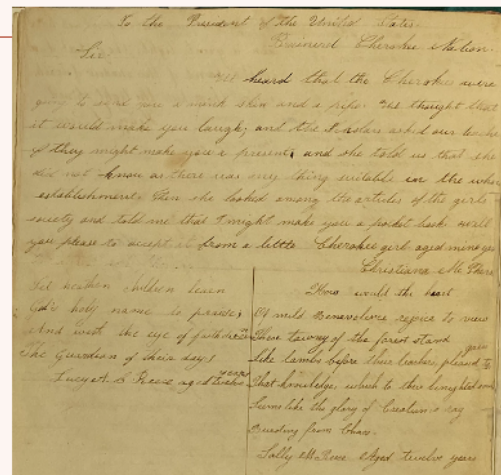 To the President of the United States
Brainerd Cherokee Nation.
Sir
We heard that the Cherokees were
going to send you a mink skin and a pipe. We thought that
it would make you laugh; and the Scholars asked our teacher
if they might make you a present, and she told us that she
did not know as there was any thing suitable in the whole
establishment. Then she looked among the articles of the girls
society and told me that I might make you a pocket book. Will
you please to accept it from a little Cherokee girl aged nine years
Christiana McPhers
Let heathen children learn
God's holy name to praise;
And with the eye of faith
The Guardian of their days
Lucy A. C. Reece aged twelve years
How would the heart
Of mild Benevolence rejoice to view
Thine tawny of the forest stand
Like lambs before their teachers, pleased to gain
That knowledge, which to their benighted
Seems like the glory of Creation's ray
Bursting from Chaos.
Sally M Reece Aged twelve years